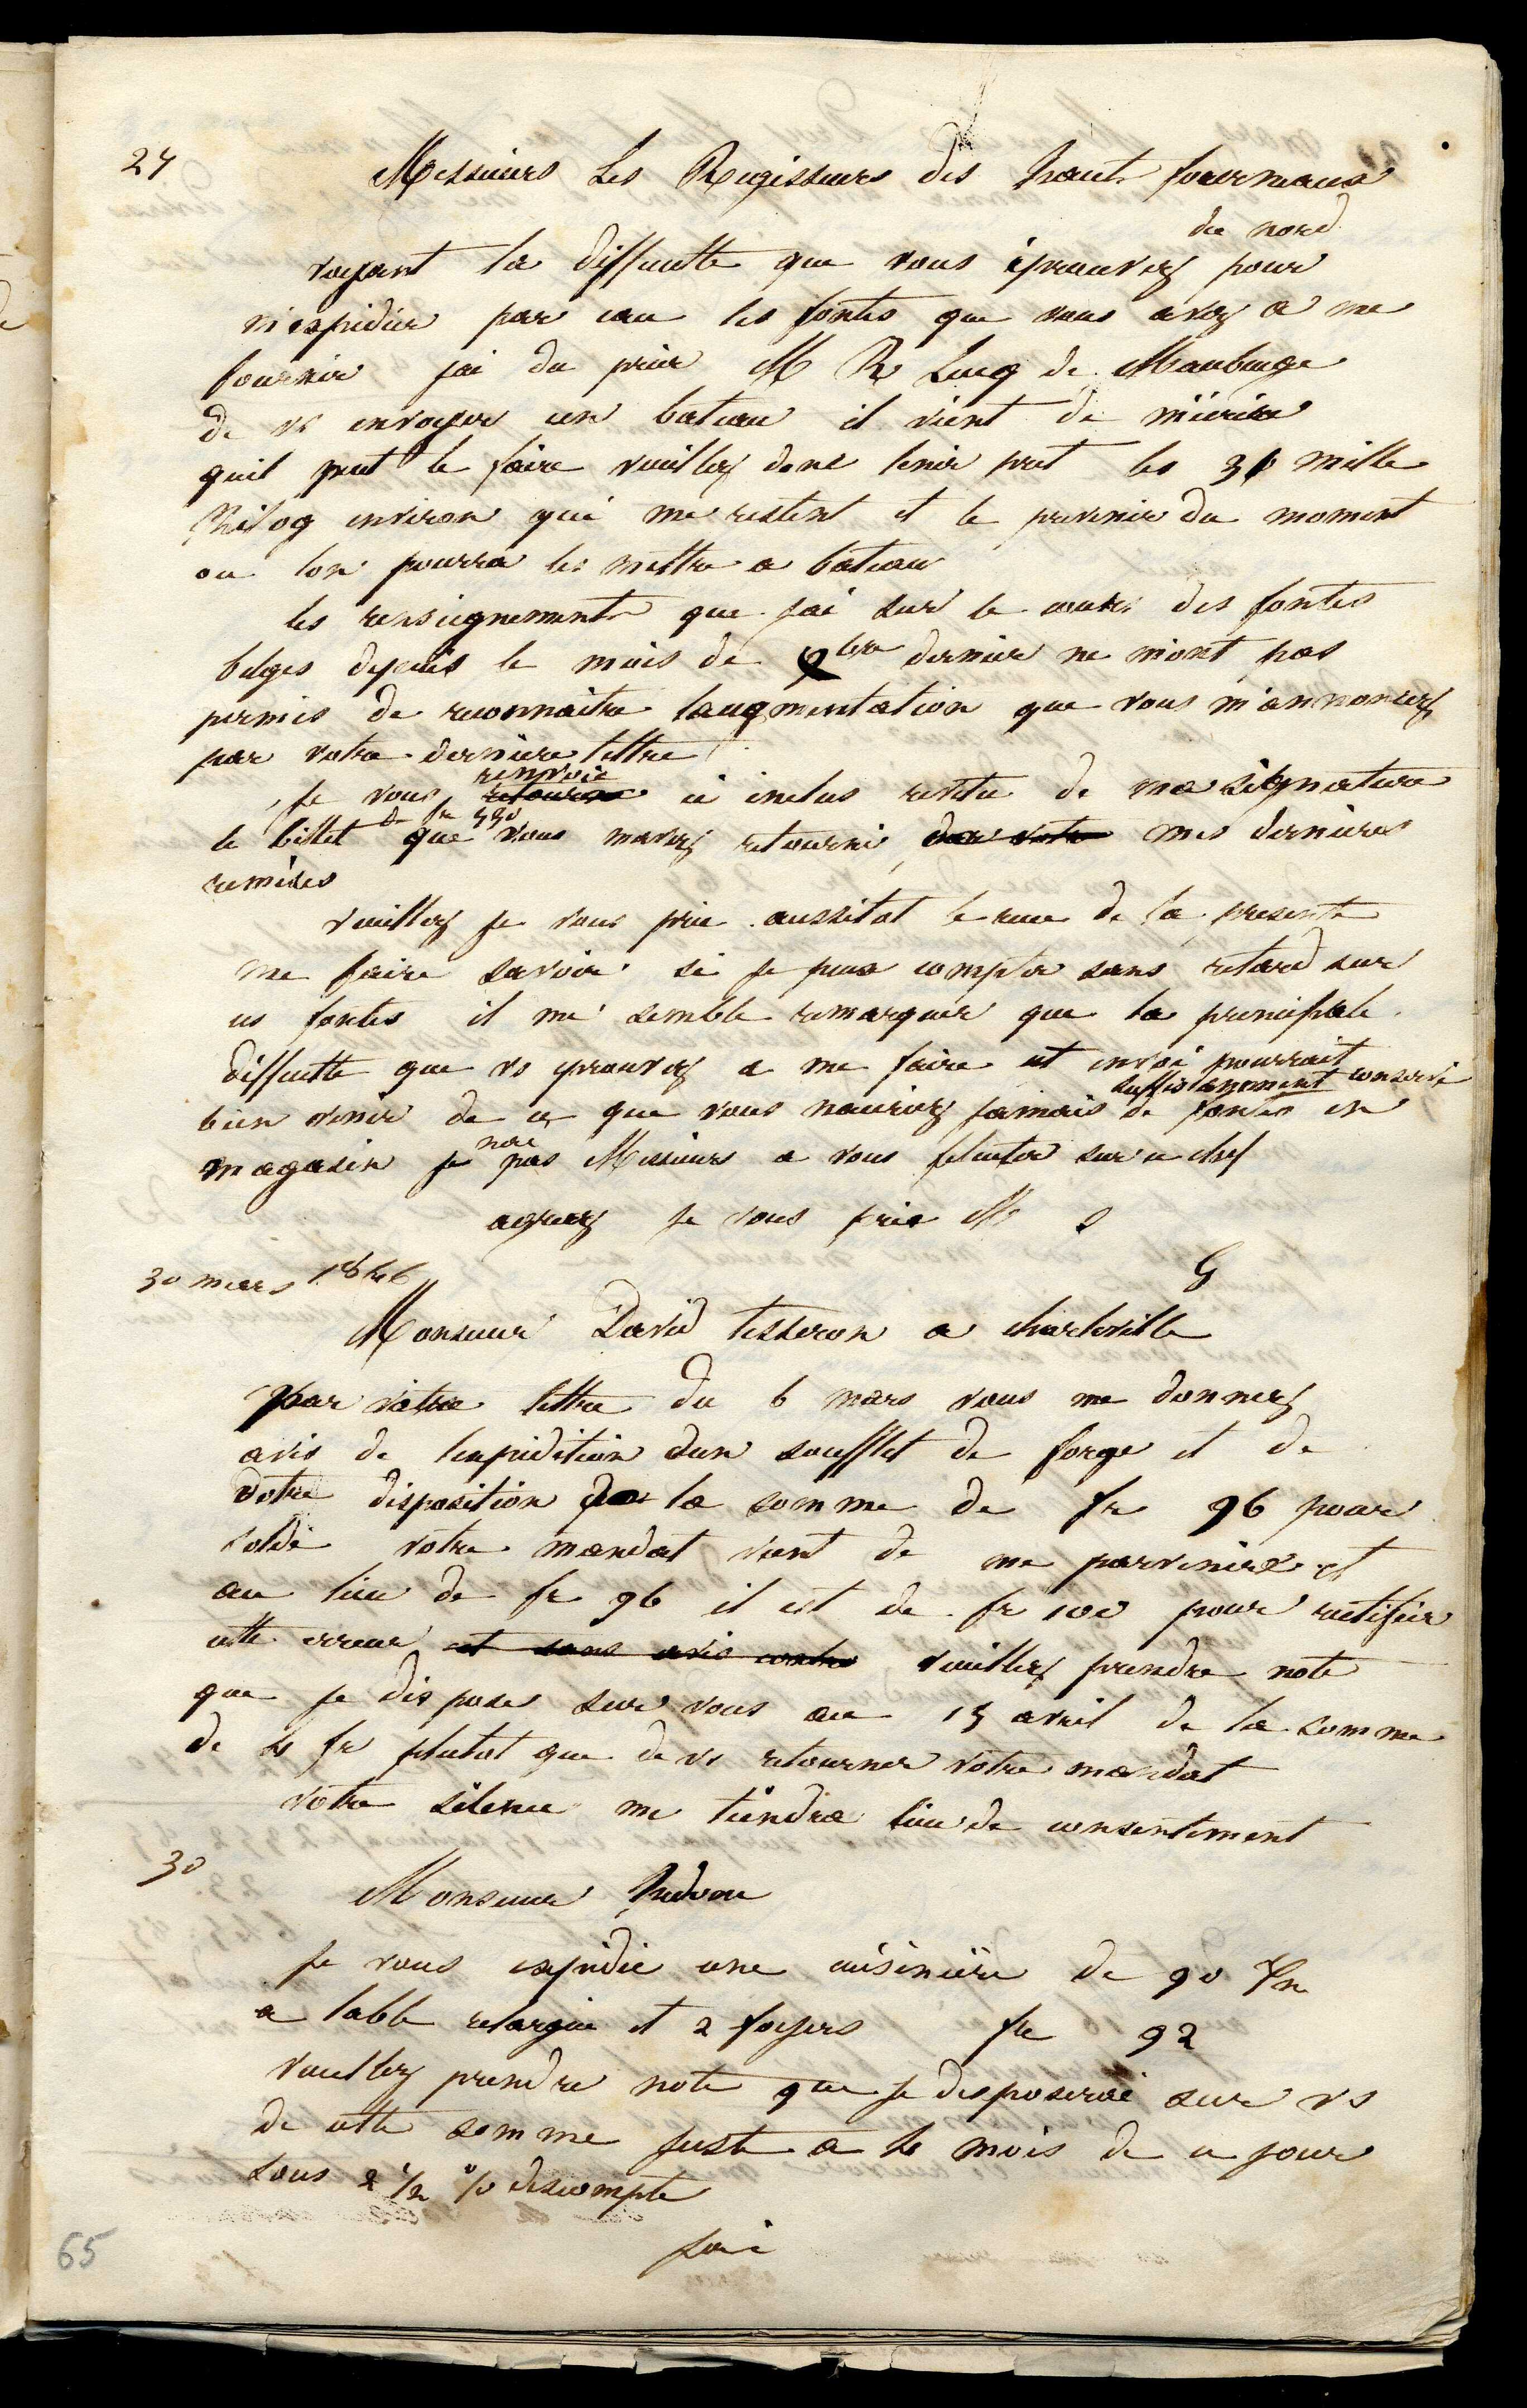 27 Messieurs Les Regisseurs des haut fourneaux
du nord
voyant la difficulte que vous éprouvez pour
m'expedier par eau les fontes que vous avez a me
fournir jai du prier M R Lucq de Maubeuge
de vs envoyer un bateau il vient de m'ecrire
quil peut le faire veuillez donc tenir pret les 30 mille
Kilog environ qui me restent et le prevenir du moment
ou lon pourra les mettre a bateau
les renseignements que jai sur le cours des fontes
belges depuis le mois de bre dernier ne mont pas
permis de reconnaitre laugmentation que vous m'annoncez
par votre derniere lettre
renvoie
Je vous retourne ci inclus revetu de ma signature
de fr 550
le billet que vous mavez retourné sur votre mes dernieres
remises
veuillez je vous prie aussitot le recu de la presente
me faire savoir si je puis compter sans retard sur
ces fontes il me semble remarquer que la principale
difficulte que vs eprouvez a me faire cet envoi pourrait
suffisamment conservé
bien venir de ce que vous nauriez jamais de fontes en
nai
magasin je pas Messieurs a vous feliciter sur ce chef
agreez je vous prie M S
G
30 mars 1846
Monsieur David tisseron a charleville
Par votre lettre du 6 mars vous me donnez
avis de lexpedition dun soufflet de forge et de
votre disposition de la somme de fr 96 pour
solde votre mandat vient de me parvenir et
au lieu de fr 96 il est de fr 100 pour rectifier
cette erreur et sans avis contre veuillez prendre note
que je dispose sur vous au 15 avril de la somme
de 4 fr plutot que de vs retourner votre mandat
votre silence me tiendra lieu de consentement
30
Monsieur
Je vous expedie une cuisiniere de 90 c/m
a table elargie et 2 foyers fr 92
veuillez prendre note que je disposerai sur vs
de cette somme juste a 4 mois de ce jour
sous 2 1/2 % descompte
jai
65